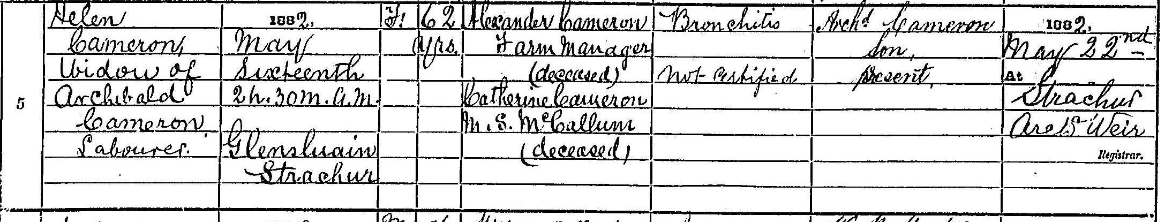 5
Helen
Cameron,
Widow of
Archibald
Cameron,
Labourer.
1882.
May
Sixteenth
2h. 30m. A.M.
Glensluain
Strachur
F.
62
Yrs.
Alexander Cameron
Farm Manager
(deceased)
Catherine Cameron
M.S. McCallum
(deceased)
Bronchitis
Not certified
Archd Cameron
Son,
Present,
1882.
May 22nd
At
Strachur
Weir
Registrar.